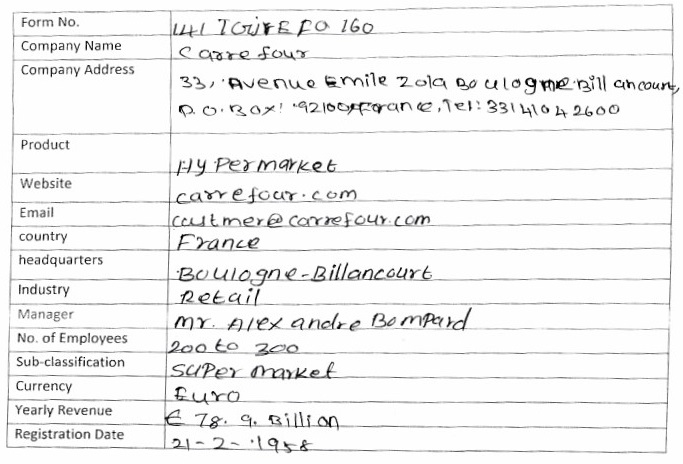 Form No. 141 TGIVEFO 160
Company Name Carrefour
Company Address
33, Avenue Emile Zola Boulogne Bill ancourt,
P.O.Box: 92100, France, Tel: 33141042600
Product Hypermarket
Website carrefour.com
Email custmer@carrefour.com
country France
headquarters Boulogne-Billancourt
Industry Retail
Manager Mr. Alexandre Bompard
No. of Employees 200 to 300
Sub-classification Super market
Currency Euro
Yearly Revenue € 78.9. Billion
Registration Date 21-2-1958